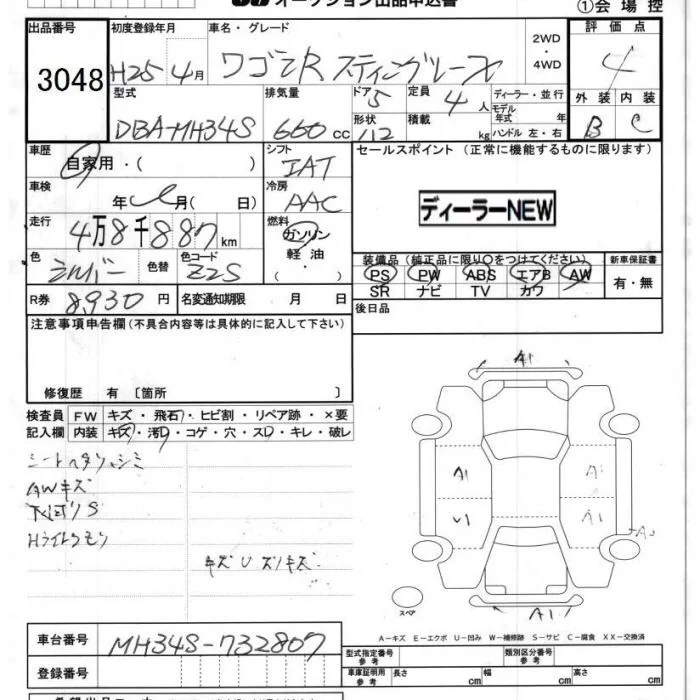 オークション出品申込書
①会場控
出品番号 3048
初度登録年月 H25年4月
車名・グレード ワゴンR スティングレーX
2WD・4WD
評価点 4
型式 DBA-MH34S
排気量 660cc
ドア 5
形状 112
定員 4人
積載 kg
ディーラー・並行
モデル年式 年
ハンドル 左・右
外装 B
内装 C
車歴 自家用・( )
シフト IAT
セールスポイント (正常に機能するものに限ります)
車検 年 月( 日)
冷房 AAC
ディーラーNEW
走行 4万8千887km
燃料 ガソリン 軽油 ( ・ )
色 シルバー 色替 色コード Z2S
装備品 (純正品に限り○をつけてください)
新車保証書
PS PW ABS エアB AW
有・無
SR ナビ TV カワ
R券 8,930円
名変通知期限 月 日
後日品
注意事項申告欄(不具合内容等は具体的に記入して下さい)
修復歴 有 〔箇所 〕
検査員 FW キズ・飛石・ヒビ割・リペア跡・×要
記入欄 内装 キズ・汚・コゲ・穴・スレ・キレ・破レ
AWキズ
下回りS
A1
A1
A1
U1
A1
A1
スペア
A－キズ E－エクボ U－凹み W－補修跡 S－サビ C－腐食 XX－交換済
車台番号 MH34S-732807
登録番号
型式指定番号 参考
類別区分番号 参考
車庫証明用 参考 長さ cm 幅 cm 高さ cm